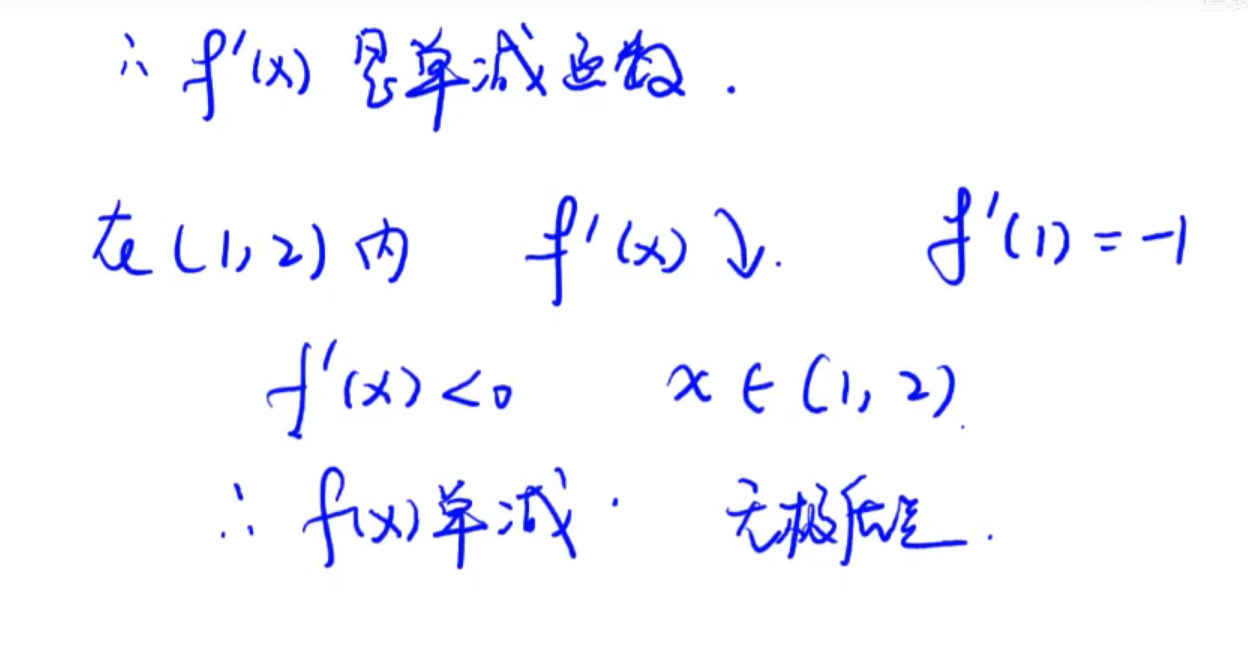 ∴ f'(x) 是单减函数.
在(1,2)内 f'(x)↓. f'(1)=-1
f'(x)<0 x∈(1,2).
∴ f(x)单减. 无极值点.